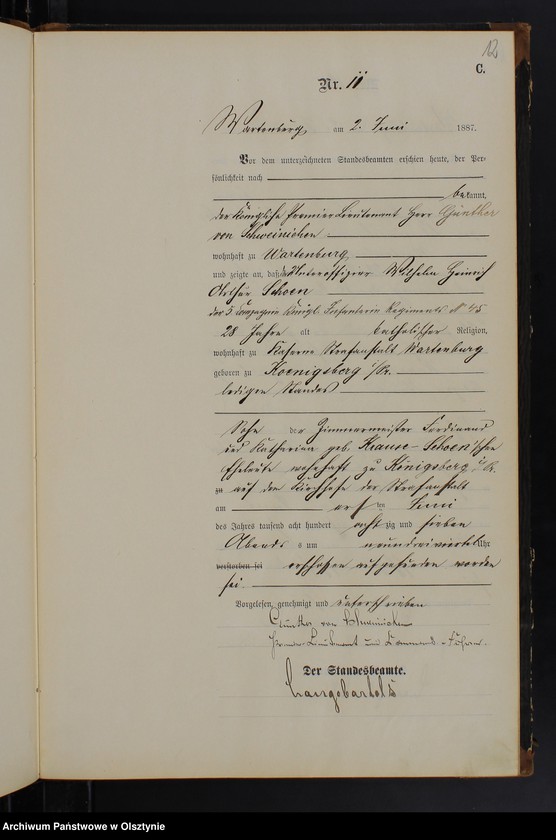 12
C.
Nr. 11
Wartenburg, am 2. Juni 1887.
Vor dem unterzeichneten Standesbeamten erschien heute, der Per-
sönlichkeit nach
bekannt,
der Königliche Premier Lieutenant Herr Günther
von Schweinichen
wohnhaft zu Wartenburg
und zeigte an, daß der Unteroffizier Wilhelm Heinrich
Arthur Schoen
der 5. Compagnie Königl. Infanterie Regiments No 45
28 Jahre alt katholischer Religion,
wohnhaft zu Kaserne Strafanstalt Wartenburg
geboren zu Koenigsberg i/Pr.
ledigen Standes
Sohn der Zimmermeister Ferdinand
und Katharina geb. Krause-Schoen'schen
Eheleute wohnhaft zu Königsberg i/Pr.
zu auf dem Kirchhofe der Strafanstalt
am Juni
des Jahres tausend acht hundert achtzig und sieben
Abends s um neundreiviertel Uhr
verstorben sei erschossen aufgefunden worden
sei.
Vorgelesen, genehmigt und unterschrieben
Günther von Schweinichen
Premier-Lieutenant und Command.-Führer.
Der Standesbeamte.